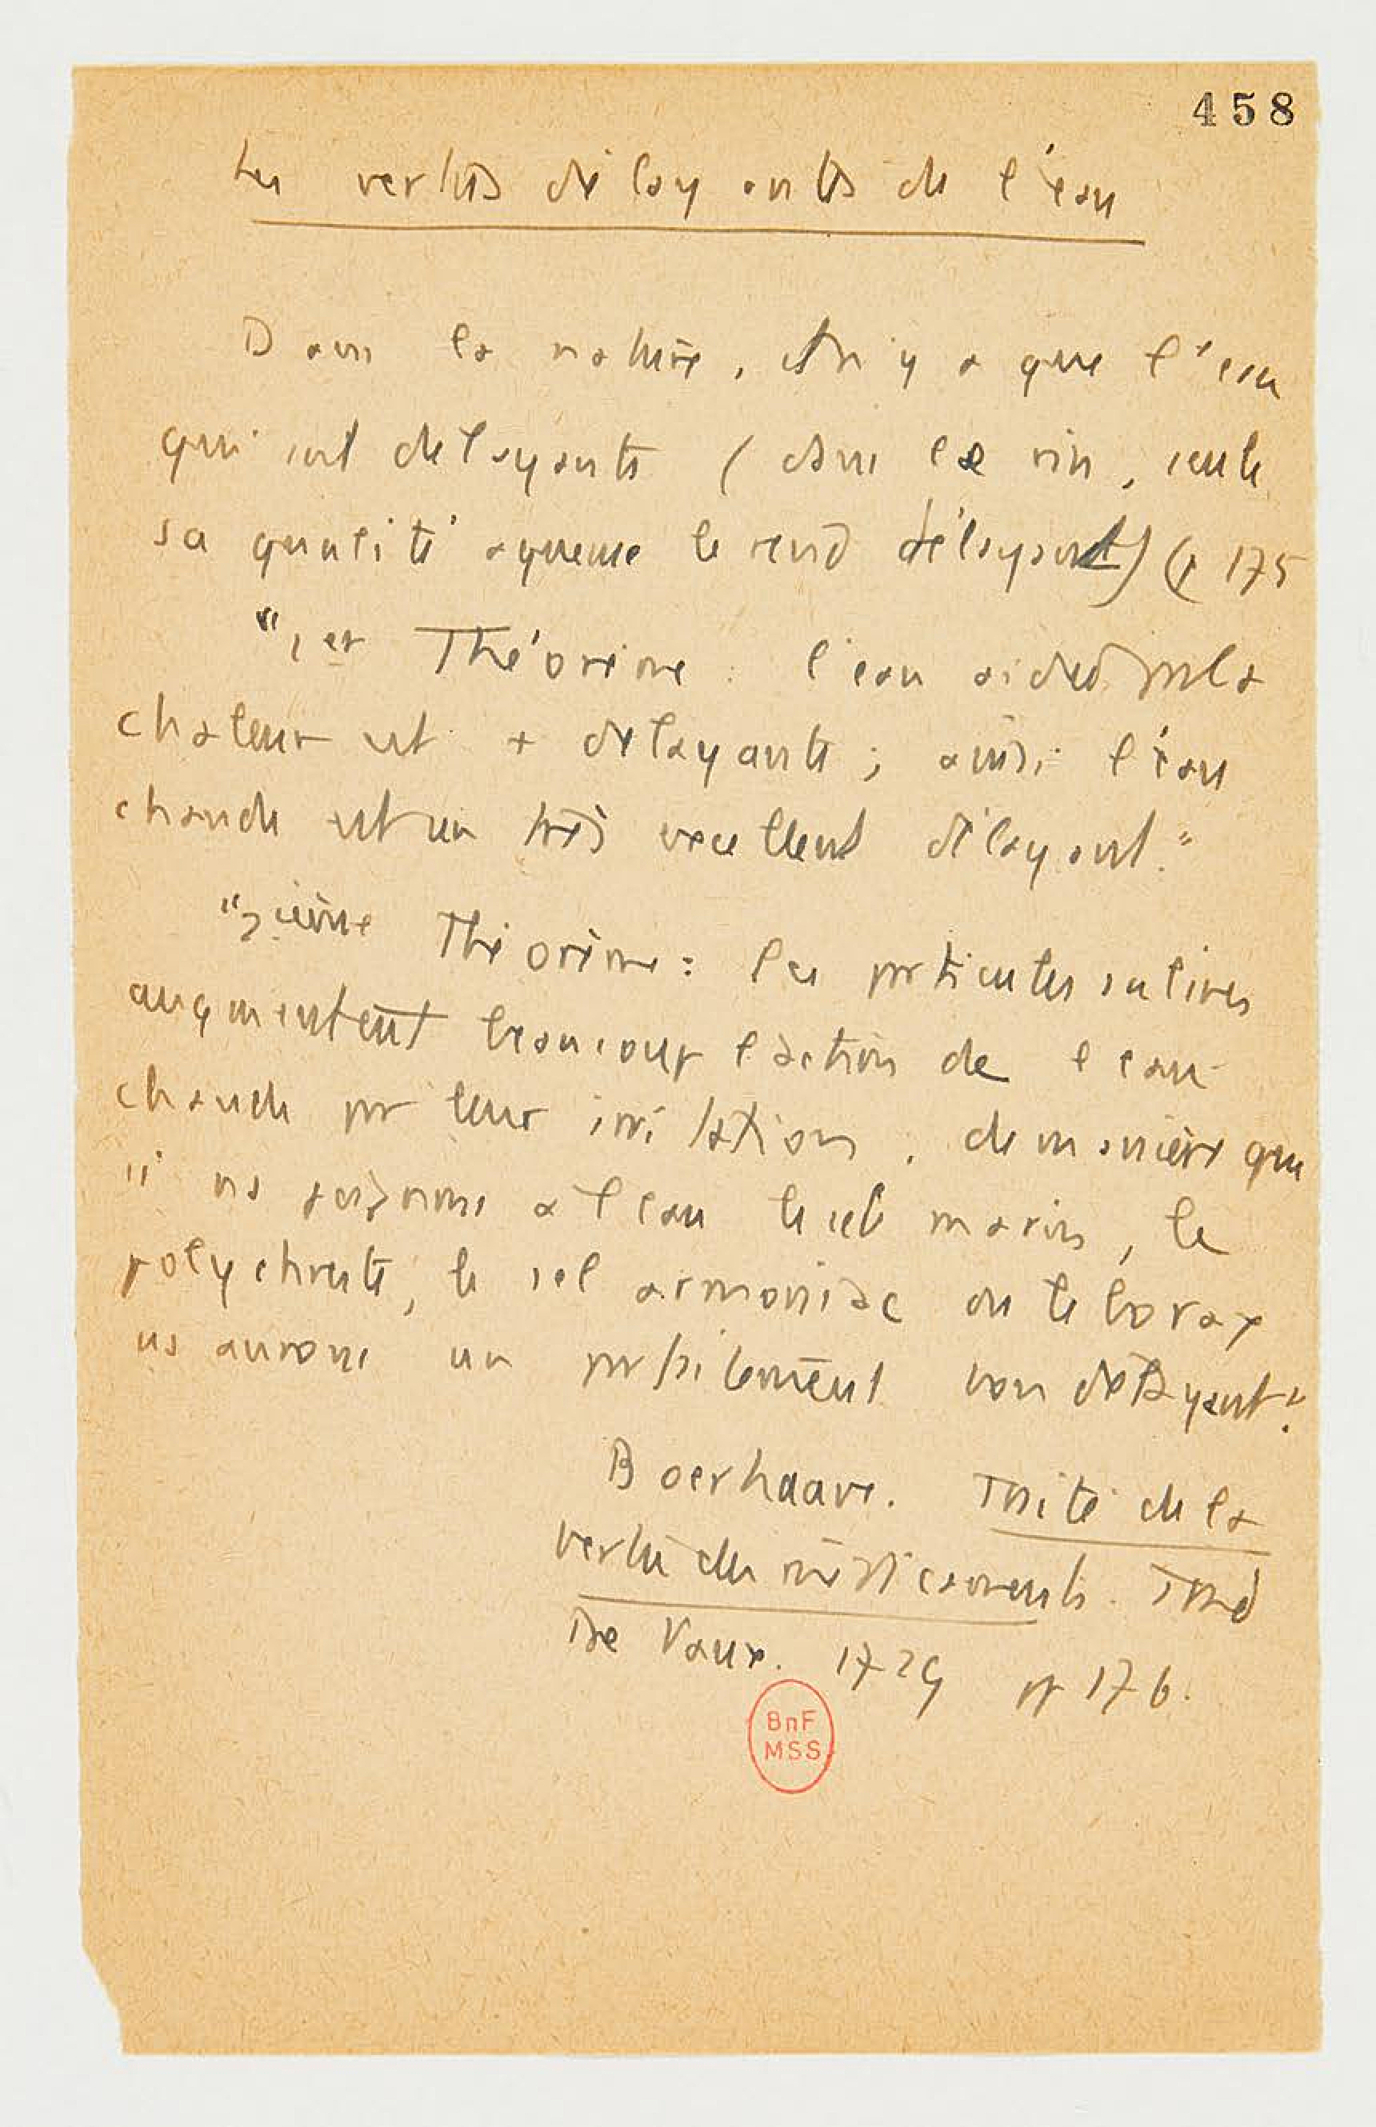 458
Les vertus délayantes de l'eau
Dans la nature, il n'y a que l'eau
qui soit delayante (dans le vin, seule
sa qualité aqueuse le rend délayant) (p 175
"1er Théorème : l'eau aidée par la
chaleur est + délayante ; ainsi l'eau
chaude est un très excellent délayant."
"2ième Théorème : les particules salines
augmentent beaucoup l'action de l'eau
chaude pr leur irritation, de manière que
si ns joignons a l'eau le sel marin, le
polychreste, le sel armoniac ou le borax
ns aurons un parfaitement bon délayant".
Boerhaave. Traité de la
vertu des médicaments. Trad
De Vaux. 1729 pp 176.
BnF
MSS